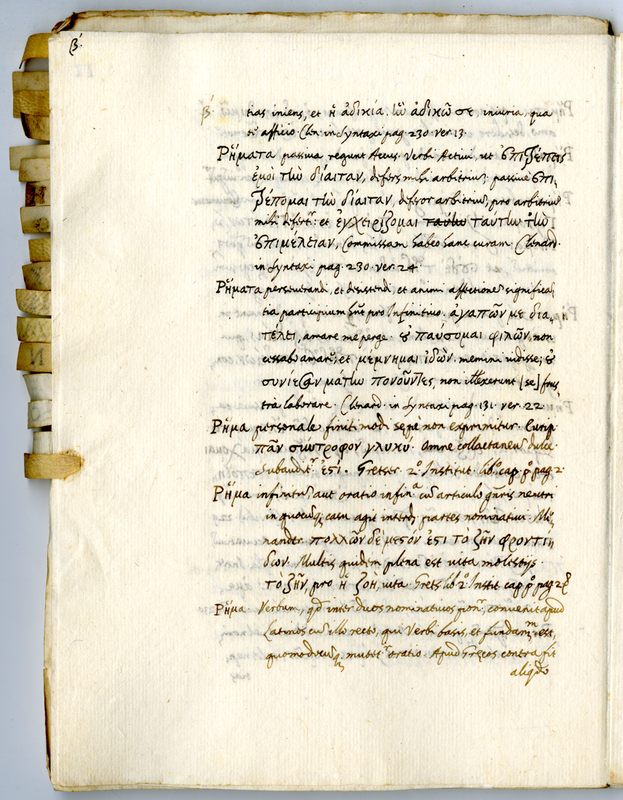 β´.
β´ tias iniens, et ἢ ἀδικία. ἣν ἀδικῶ σε iniuria, qua
te afficio. Clen. in syntaxi pag. 230. ver. 13.
Ρἥματα passiua regunt Accus. Verbi Actiui, ut ἐπιτρέπεις
ἐμοὶ τὴν δίαιταν, defers mihi arbitrium; passiue ἐπι,
τρέπομαι τὴν δίαιταν, deferor arbitrium, pro arbitrium
mihi defert.r et ἐγχειρίζομαι ταύτην ταύτην τὴν
ἐπιμέλειαν, Commissam habeo hanc curam. Clenard.
in syntaxi pag. 230. ver. 24.
Ρἥματα perseuerandi, et desistendi, et animi affectione significa,
tia participium hnt pro Infinitiuo. ἀγαπῶν με δια,
τέλει, amare me perge. οὐ παύσομαι φιλῶν, non
cessabo amare, et μέμνημαι ἰδὼν. memini uidisse; οὐ
συνίεσαν μάτην πονοῦντες, non itellexerunt [se] frus,
tra laborare. Clenard. in syntaxi pag. 131. ver. 22.
Ρἥμα personale finiti modi sepè non exprimitur. Eurip.
πᾶν σύντροφον γλυκύ. Omne collactaneum dulce.
subaudit.r ἐστι. Gretser. 2.º Institut. lib.º cap. p.º pag. 2.
Ρἥμα infinitum aut oratio infin.a cum articulo gnris neutri
in quocumq; casu agit interdum partes nominatiui. Me,
nander πολλῶν δὲ μεστόν ἐστι τὸ ζῆν φροντί,
δων. Multis quidem plena est uita molestijs.
τὸ ζῆν, pro ἡ ζωὴ, uita. Grets. lib. 2.º Instit. cap. p.º pag. 2.
Ρἥμα Verbum, qd inter duos nominatiuos pon.r, conuenit apud
Latinos cum illo recto, qui Verbi basis, et fundam.m est,
quomodocumq; mutet.r oratio. Apud Grecos contra fit
aliqdo